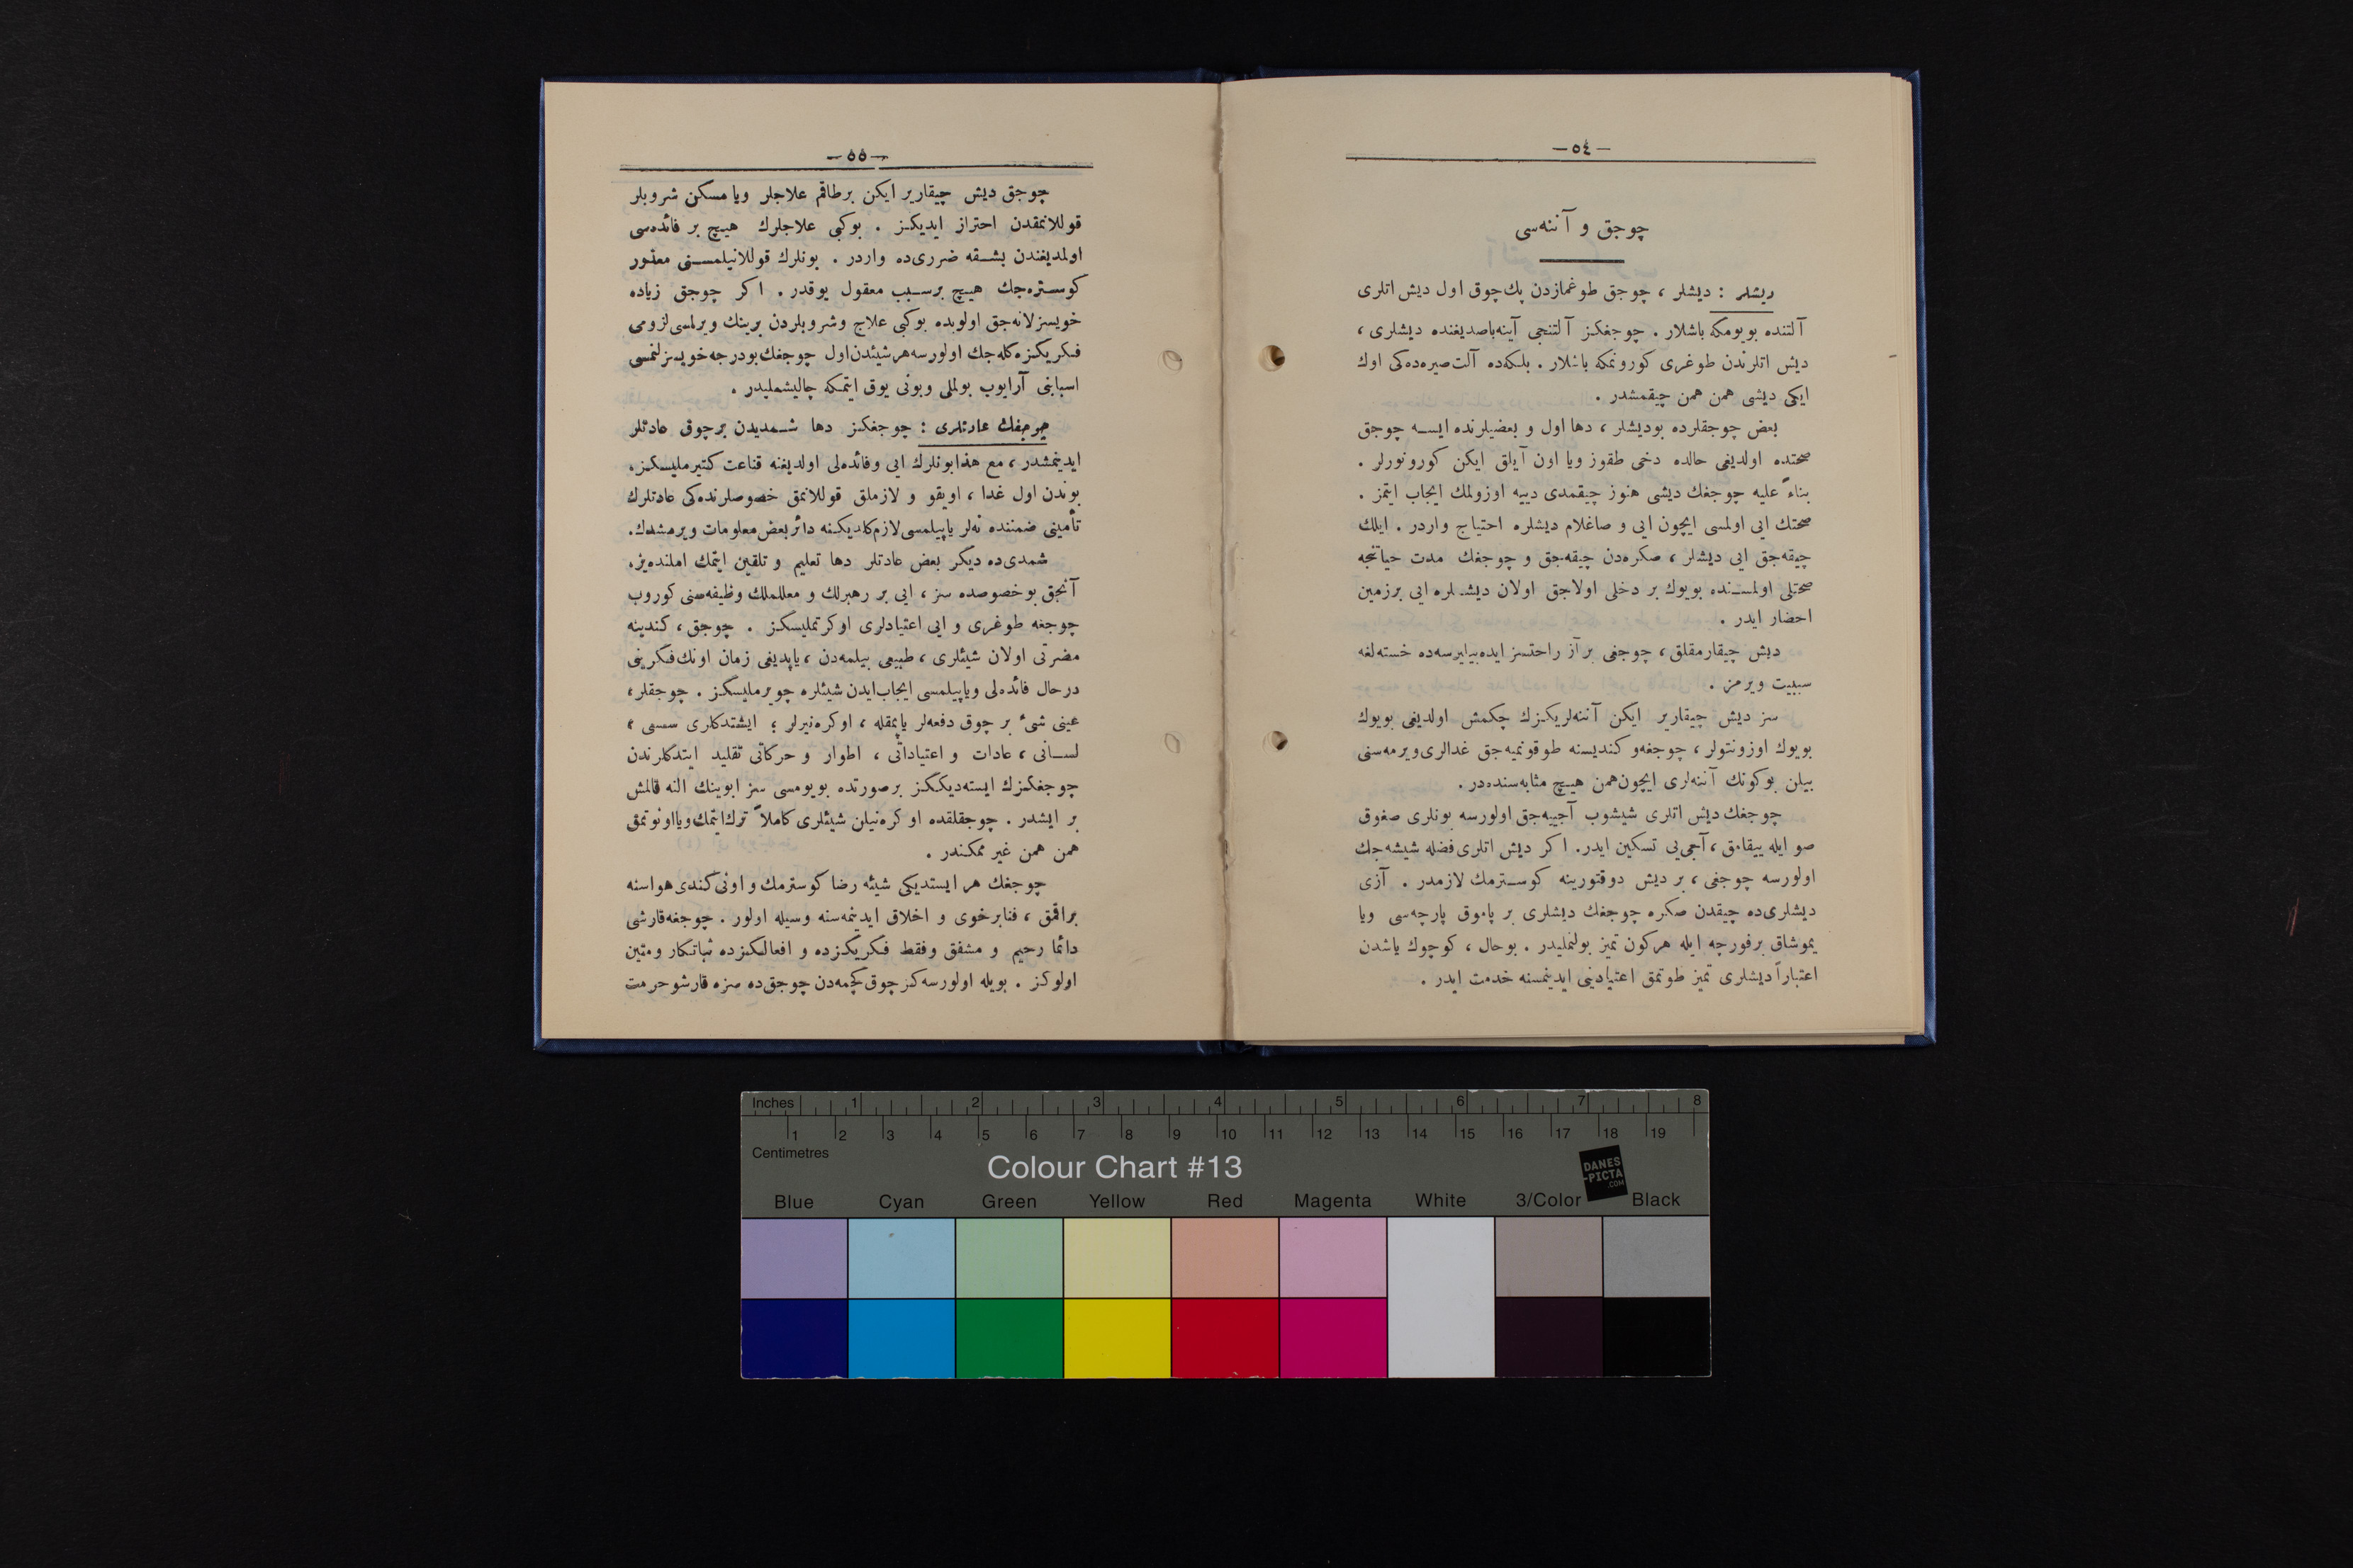 — ٥٤ —
چوجق و آننه‌سی
دیشلر : دیشلر ، چوجق طوغمازدن پك‌چوق اول دیش اتلری
آلتنده بویومكه باشلار . چوجغكز آلتنجی آینه‌باصدیغنده دیشلری ،
دیش اتلرندن طوغری كورونمكه باشلار . بلكه‌ده آلت‌صیره‌ده‌كی اوك
ایكی دیشی همن همن چیقمشدر .
بعض چوجقلرده بودیشلر ، دها اول و بعضیلرنده ایسه چوجق
صحتده اولدیغی حالده دخی طقوز ویا اون آیلق ایكن كورونورلر .
بناءً علیه چوجغك دیشی هنوز چیقمدی دییه اوزولمك ایجاب ایتمز .
صحتك ایی اولمسی ایچون ایی و صاغلام دیشلره احتیاج واردر . ایلك
چیقه‌جق ایی دیشلر ، صكره‌دن چیقه‌جق و چوجغك مدت حیاتنجه
صحتلی اولمسنده بویوك بر دخلی اولاجق اولان دیشلره ایی برزمین
احضار ایدر .
دیش چیقارمقلق ، چوجغی برآز راحتسز ایده‌بیلیرسه‌ده خسته‌لغه
سببیت ویرمز .
سز دیش چیقاریر ایكن آننه‌لریكزك چكمش اولدیغی بویوك
بویوك اوزونتولر ، چوجغه‌و كندیسنه طوقونمیه‌جق غدالری‌ویرمه‌سنی
بیلن بوكونك آننه‌لری ایچون‌همن هیچ مثابه‌سنده‌در .
چوجغك دیش اتلری شیشوب آجییه‌جق اولورسه بونلری صغوق
صو ایله ییقامق ، آجی‌یی تسكین ایدر. اكر دیش اتلری‌فضله شیشه‌جك
اولورسه چوجغی ، بر دیش دوقتورینه كوسترمك لازمدر . آزی
دیشلری‌ده چیقدن صكره چوجغك دیشلری بر پاموق پارچه‌سی ویا
یموشاق برفورچه ایله هركون تمیز بولنملیدر . بوحال ، كوچوك یاشدن
اعتباراً دیشلری تمیز طوتمق اعتیادینی ایدینمسنه خدمت ایدر .
— ٥٥ —
چوجق دیش چیقاریر ایكن برطاقم علاجلر ویا مسكن شروبلر
قوللانمقدن احتراز ایدیكز . بوكبی علاجلرك هیچ بر فائده‌سی
اولمدیغندن بشقه ضرری‌ده واردر . بونلرك قوللانیلمسنی معذور
كوستره‌جك هیچ برسبب معقول یوقدر . اكر چوجق زیاده
خویسزلانه‌جق اولوبده بوكبی علاج وشروبلردن برینك ویرلمسی‌لزومی
فكریكزه كله‌جك اولورسه‌هرشیئدن‌اول چوجغك‌بودرجه‌خویسزلنمسی
اسبابنی آرایوب بولملی وبونی یوق ایتمكه چالیشملیدر .
چوجغك عادتلری : چوجغكز دها شمدیدن برچوق عادتلر
ایدینمشدر ، مع هذابونلرك ایی وفائده‌لی اولدیغنه قناعت كتیرملیسكز.
بوندن اول غدا ، اویقو و لازملق قوللانمق خصوصلرنده‌كی عادتلرك
تأمینی ضمننده نه‌لر یاپیلمسی لازم‌كلدیكنه دائربعض‌معلومات ویرمشدك.
شمدی‌ده دیگر بعض عادتلر دها تعلیم و تلقین ایتمك املنده‌یز.
آنجق بوخصوصده سز ، ایی بر رهبرلك و معلملك وظیفه‌سنی كوروب
چوجغه طوغری و ایی اعتیادلری اوكرتملیسكز . چوجق ، كندینه
مضرتی اولان شیئلری ، طبیعی بیلمه‌دن ، یاپدیغی زمان اونك‌فكرینی
درحال فائده‌لی ویاپیلمسی ایجاب‌ایدن شیئلره چویرملیسكز . چوجقلر ،
عینی شیء بر چوق دفعه‌لر یاپمقله ، اوكره‌نیرلر ؛ ایشتدكلری سسی ،
لسانی ، عادات و اعتیاداتی ، اطوار و حركاتی تقلید ایتدكلرندن
چوجغكزك ایسته‌دیككز برصورتده بویومسی سز ابوینك النه قالمش
بر ایشدر . چوجقلقده اوكره‌نیلن شیئلری كاملاً ترك‌ایتمك‌ویااونوتمق
همن همن غیر ممكندر .
چوجغك هر ایستدیكی شیئه رضا كوسترمك و اونی‌كندی‌هواسنه
براقمق ، فنابرخوی و اخلاق ایدینمه‌سنه وسیله اولور . چوجغه‌قارشی
دائما رحیم و مشفق وفقط فكریكزده و افعالكزده ثباتكار ومتین
اولوكز . بویله اولورسه‌كز چوق‌كچمه‌دن چوجق‌ده سزه قارشو حرمت
Inches 1 2 3 4 5 6 7 8
1 2 3 4 5 6 7 8 9 10 11 12 13 14 15 16 17 18 19
Centimetres
Colour Chart #13
DANES
-PICTA
.COM
Blue Cyan Green Yellow Red Magenta White 3/Color Black